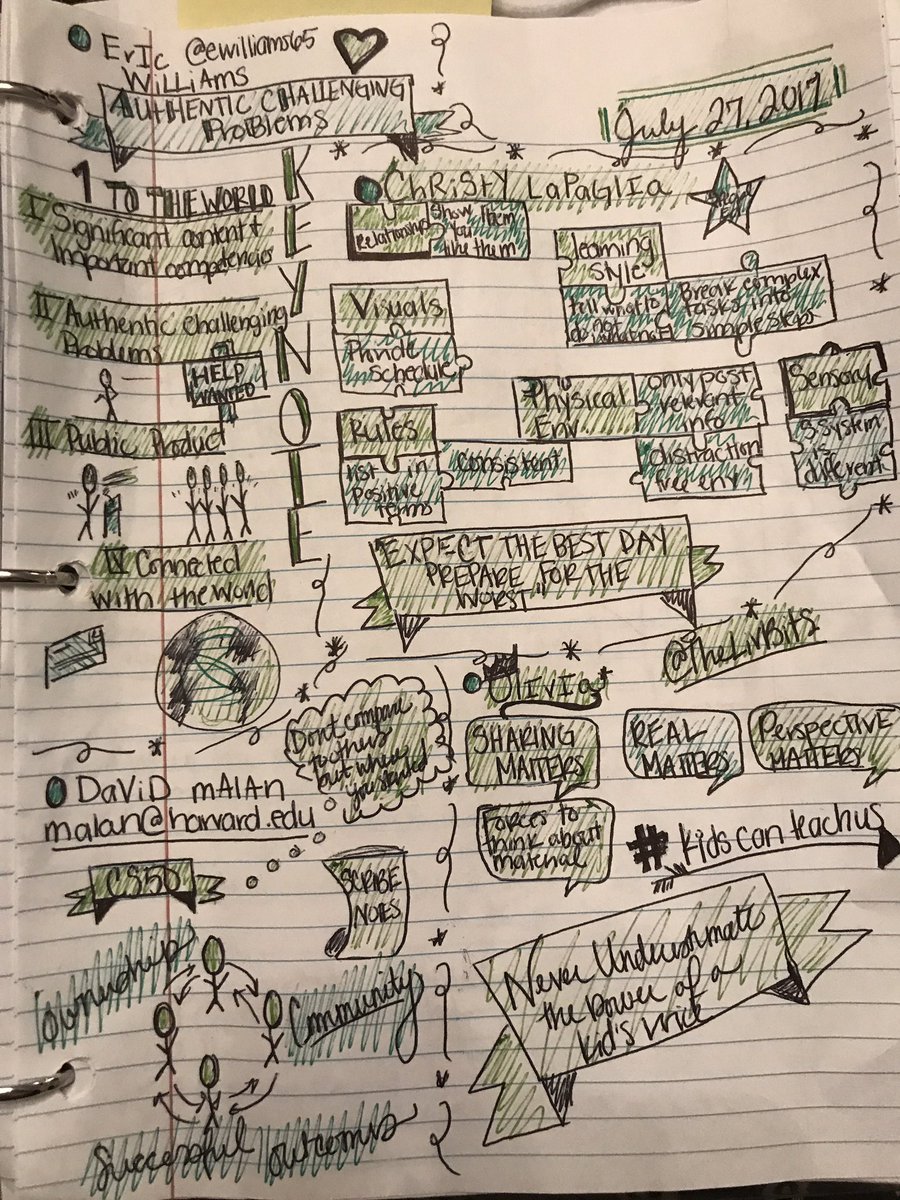 Eric @ewilliams65
Williams
AUTHENTIC CHALLENGING
Problems
July 27, 2017
KEYNOTE
1 TO THE WORLD
I Significant content +
Important competencies
II Authentic Challenging
Problems
HELP
WANTED
III Public Product
IV Connected
with the world
ChRiSty LaPaGlia
Special
Ed
Relationships
Show Them
You
like them
learning
Style
tell what to
do not
what not
Break complex
tasks into
Simple steps
Visuals
Provide
schedule
Physical
Env
only post
relevant
info
distraction
free env
Sensory
SSystem
is
different
Rules
list in
Positive
terms
Consistent
"EXPECT THE BEST DAY
PREPARE FOR THE
WORST"
@TheLivBits
Olivia
SHARING
MATTERS
REAL
MATTERS
Perspective
MATTERS
Forces to
think about
material
#kidscanteachus
Never Underestimate
the power of a
kid's voice
DaViD mAlAn
malan@harvard.edu
Dont compare
to others
but where
you started
CS50
SCRIBE
NOTES
ownership
Community
Successful outcomes